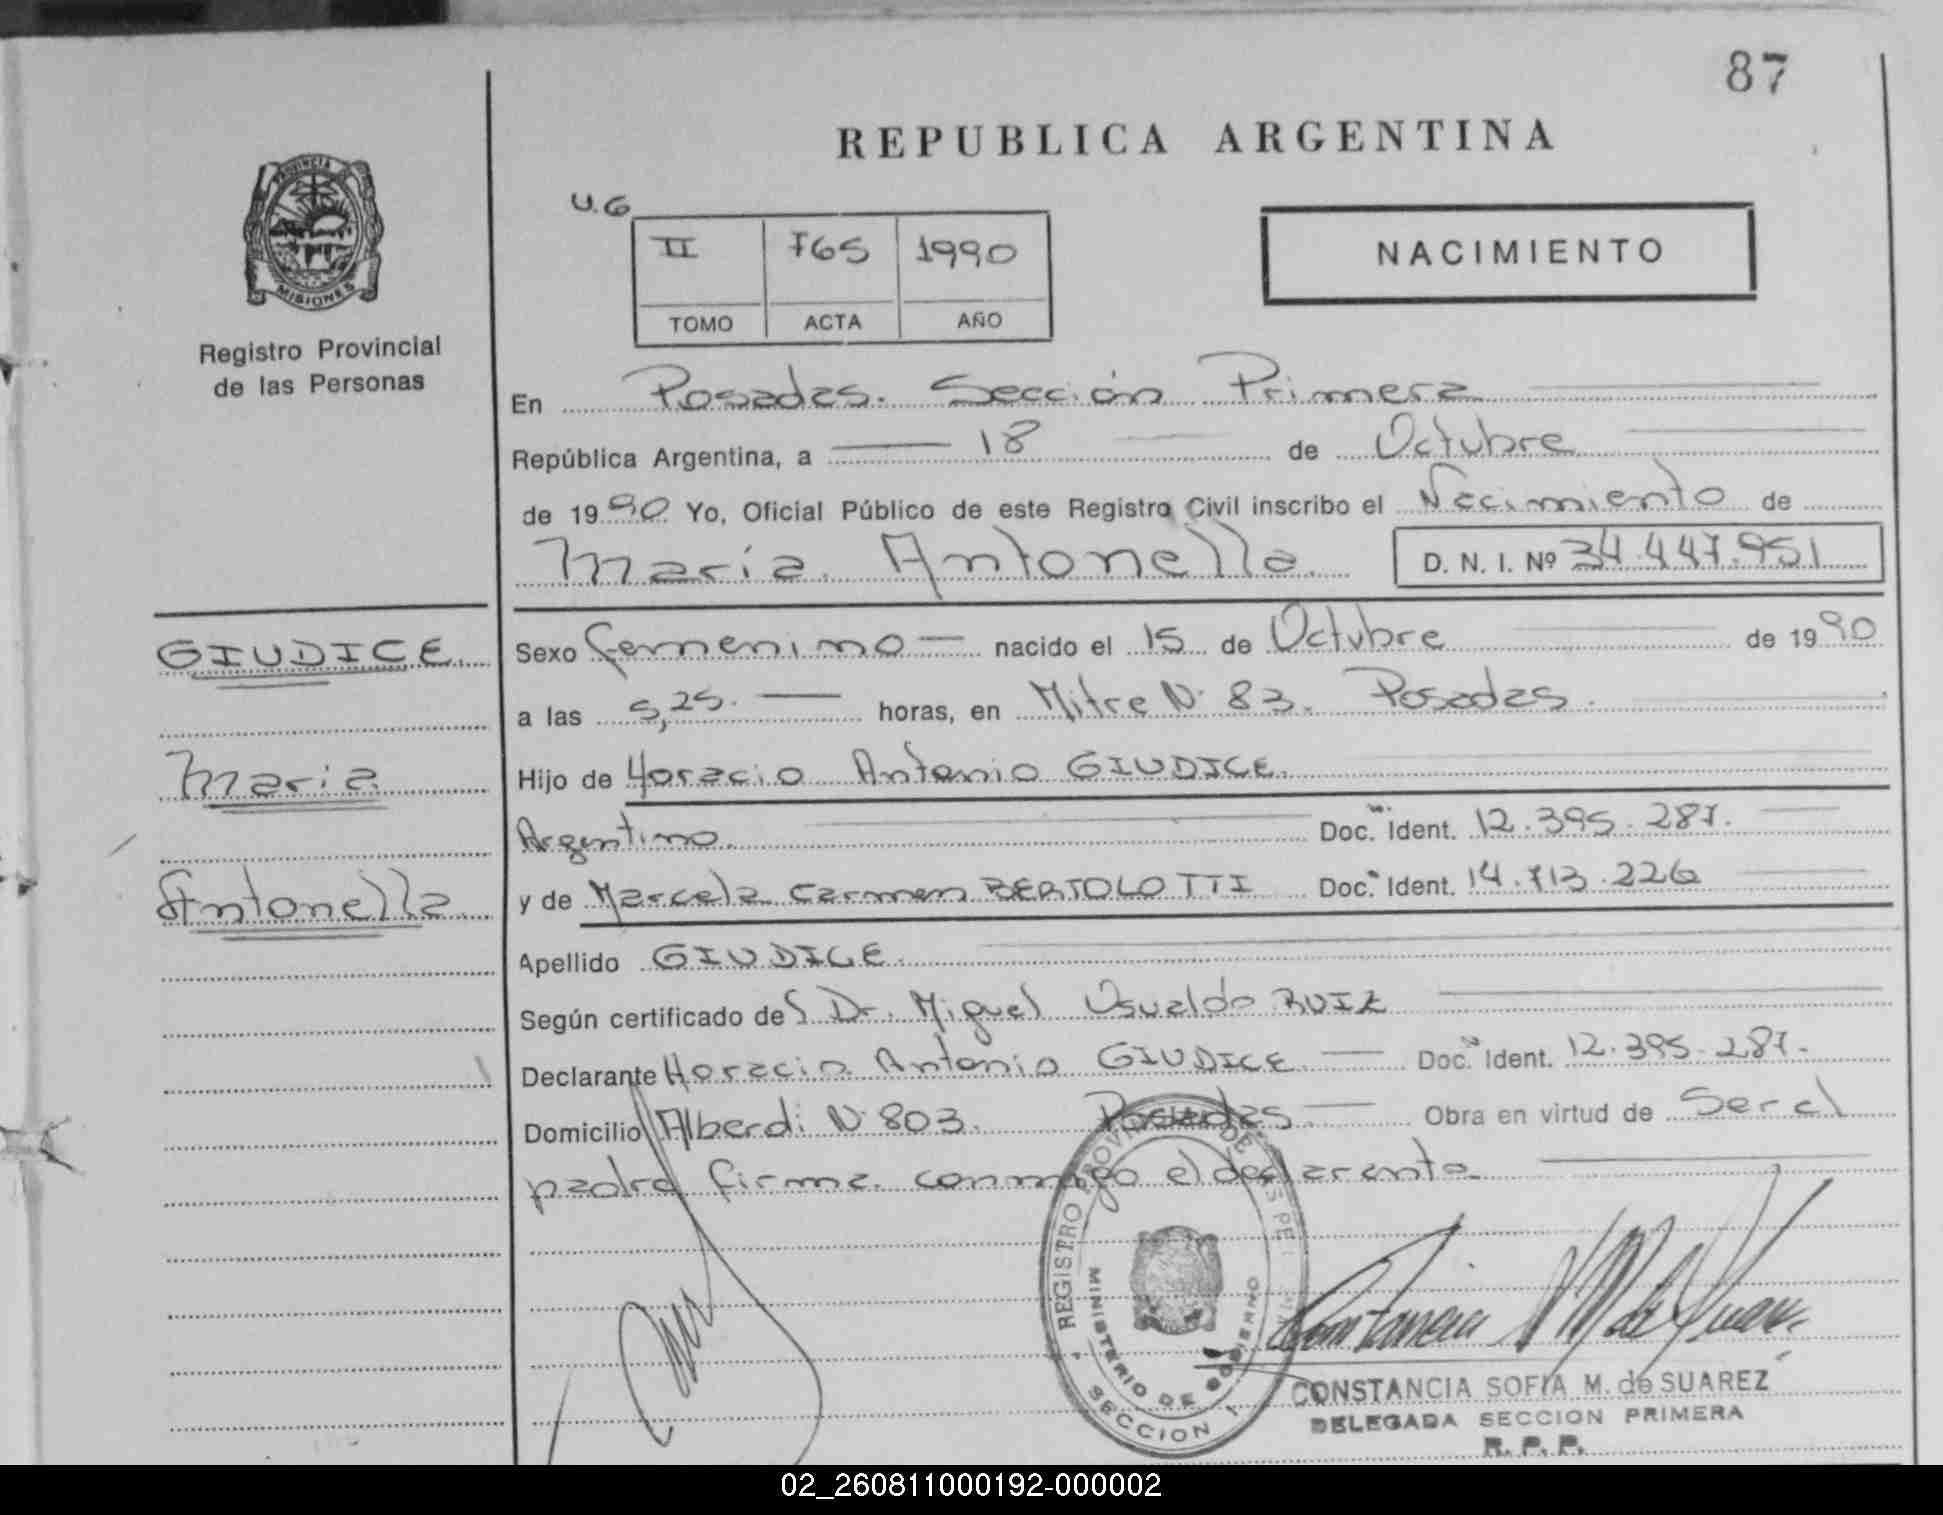 87
REPUBLICA ARGENTINA
PROVINCIA DE
MISIONES
Registro Provincial
de las Personas
U.G
II 765 1990
TOMO ACTA AÑO
NACIMIENTO
En Posadas. Sección Primera
República Argentina, a 18 de Octubre
de 1990 Yo, Oficial Público de este Registro Civil inscribo el Nacimiento de
María Antonella D. N. I. Nº 34.447.951
GIUDICE
Maria
Antonella
Sexo femenino nacido el 15 de Octubre de 1990
a las 5,25. horas, en Mitre Nº 83. Posadas.
Hijo de Horacio Antonio GIUDICE.
Argentino. Doc. Ident. 12.395.287.
y de Marcela Carmen BERTOLOTTI Doc. Ident. 14.713.226
Apellido GIUDICE.
Según certificado de Dr. Miguel Osvaldo RUIZ
Declarante Horacio Antonio GIUDICE. Doc. Ident. 12.395.287.
Domicilio Alberdi Nº 803. Posadas. Obra en virtud de Ser el
padre firma conmigo el declarante
REGISTRO PROVINCIAL DE LAS PE
MINISTERIO DE GOBIERNO
SECCION 1
CONSTANCIA SOFIA M. de SUAREZ
DELEGADA SECCION PRIMERA
R. P. P.
02_260811000192-000002